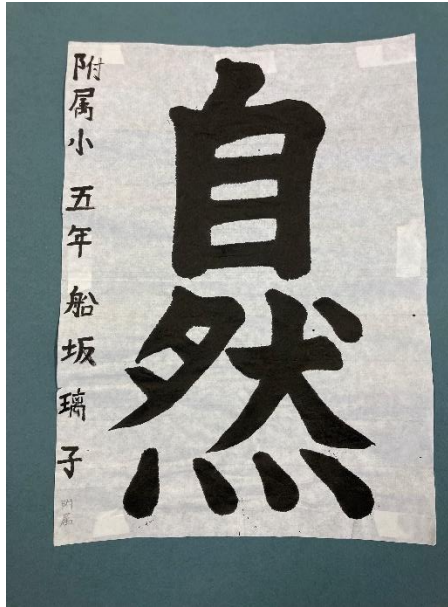 自然
附属小 五年 船坂 璃子
附属